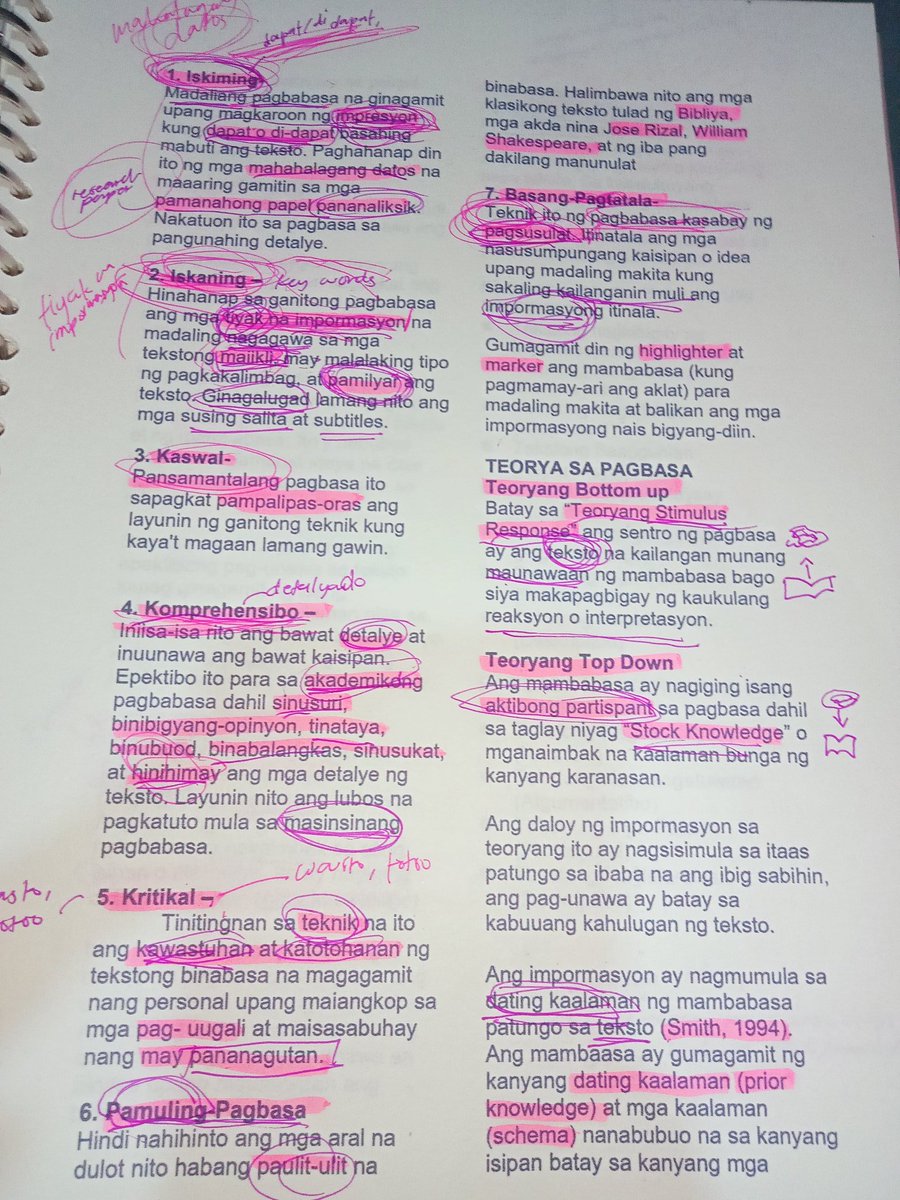 mahahalagang
datos
dapat/di dapat,
1. Iskiming-
Madaliang pagbabasa na ginagamit
upang magkaroon ng impresyon
kung dapat o di-dapat basahing
mabuti ang teksto. Paghahanap din
ito ng mga mahahalagang datos na
maaaring gamitin sa mga
pamanahong papel pananaliksik.
Nakatuon ito sa pagbasa sa
pangunahing detalye.
research
paper
2. Iskaning –
key words
tiyak na
Hinahanap sa ganitong pagbabasa
ang mga tiyak na impormasyon na
madaling nagagawa sa mga
tekstong maiikli, may malalaking tipo
ng pagkakalimbag, at pamilyar ang
teksto. Ginagalugad lamang nito ang
mga susing salita at subtitles.
3. Kaswal-
Pansamantalang pagbasa ito
sapagkat pampalipas-oras ang
layunin ng ganitong teknik kung
kaya't magaan lamang gawin.
detalyado
4. Komprehensibo –
Iniisa-isa rito ang bawat detalye at
inuunawa ang bawat kaisipan.
Epektibo ito para sa akademikong
pagbabasa dahil sinusuri,
binibigyang-opinyon, tinataya,
binubuod, binabalangkas, sinusukat,
at hinihimay ang mga detalye ng
teksto. Layunin nito ang lubos na
pagkatuto mula sa masinsinang
pagbabasa.
wasto, totoo
5. Kritikal –
Tinitingnan sa teknik na ito
ang kawastuhan at katotohanan ng
tekstong binabasa na magagamit
nang personal upang maiangkop sa
mga pag- uugali at maisasabuhay
nang may pananagutan.
6. Pamuling-Pagbasa
Hindi nahihinto ang mga aral na
dulot nito habang paulit-ulit na
binabasa. Halimbawa nito ang mga
klasikong teksto tulad ng Bibliya,
mga akda nina Jose Rizal, William
Shakespeare, at ng iba pang
dakilang manunulat
7. Basang-Pagtatala-
Teknik ito ng pagbabasa kasabay ng
pagsusulat. Itinatala ang mga
nasusumpungang kaisipan o idea
upang madaling makita kung
sakaling kailanganin muli ang
impormasyong itinala.
Gumagamit din ng highlighter at
marker ang mambabasa (kung
pagmamay-ari ang aklat) para
madaling makita at balikan ang mga
impormasyong nais bigyang-diin.
TEORYA SA PAGBASA
Teoryang Bottom up
Batay sa “Teoryang Stimulus
Response” ang sentro ng pagbasa
ay ang teksto na kailangan munang
maunawaan ng mambabasa bago
siya makapagbigay ng kaukulang
reaksyon o interpretasyon.
Teoryang Top Down
Ang mambabasa ay nagiging isang
aktibong partispant sa pagbasa dahil
sa taglay niyag “Stock Knowledge” o
mganaimbak na kaalaman bunga ng
kanyang karanasan.
Ang daloy ng impormasyon sa
teoryang ito ay nagsisimula sa itaas
patungo sa ibaba na ang ibig sabihin,
ang pag-unawa ay batay sa
kabuuang kahulugan ng teksto.
Ang impormasyon ay nagmumula sa
dating kaalaman ng mambabasa
patungo sa teksto (Smith, 1994).
Ang mambaasa ay gumagamit ng
kanyang dating kaalaman (prior
knowledge) at mga kaalaman
(schema) nanabubuo na sa kanyang
isipan batay sa kanyang mga